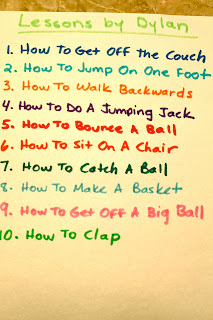 Lessons by Dylan
1. How To Get Off the Couch
2. How To Jump On One Foot
3. How To Walk Backwards
4. How To Do A Jumping Jack
5. How To Bounce A Ball
6. How To Sit On A Chair
7. How To Catch A Ball
8. How To Make A Basket
9. How To Get Off A Big Ball
10. How To Clap